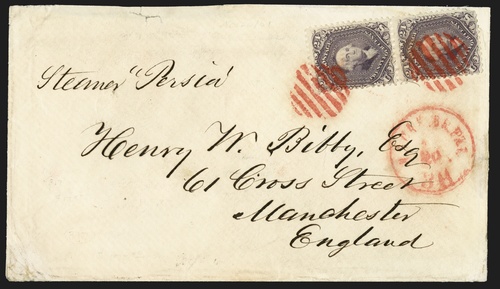 Steamer "Persia"
Henry W. Bibby, Esq
61 Cross Street
Manchester
England